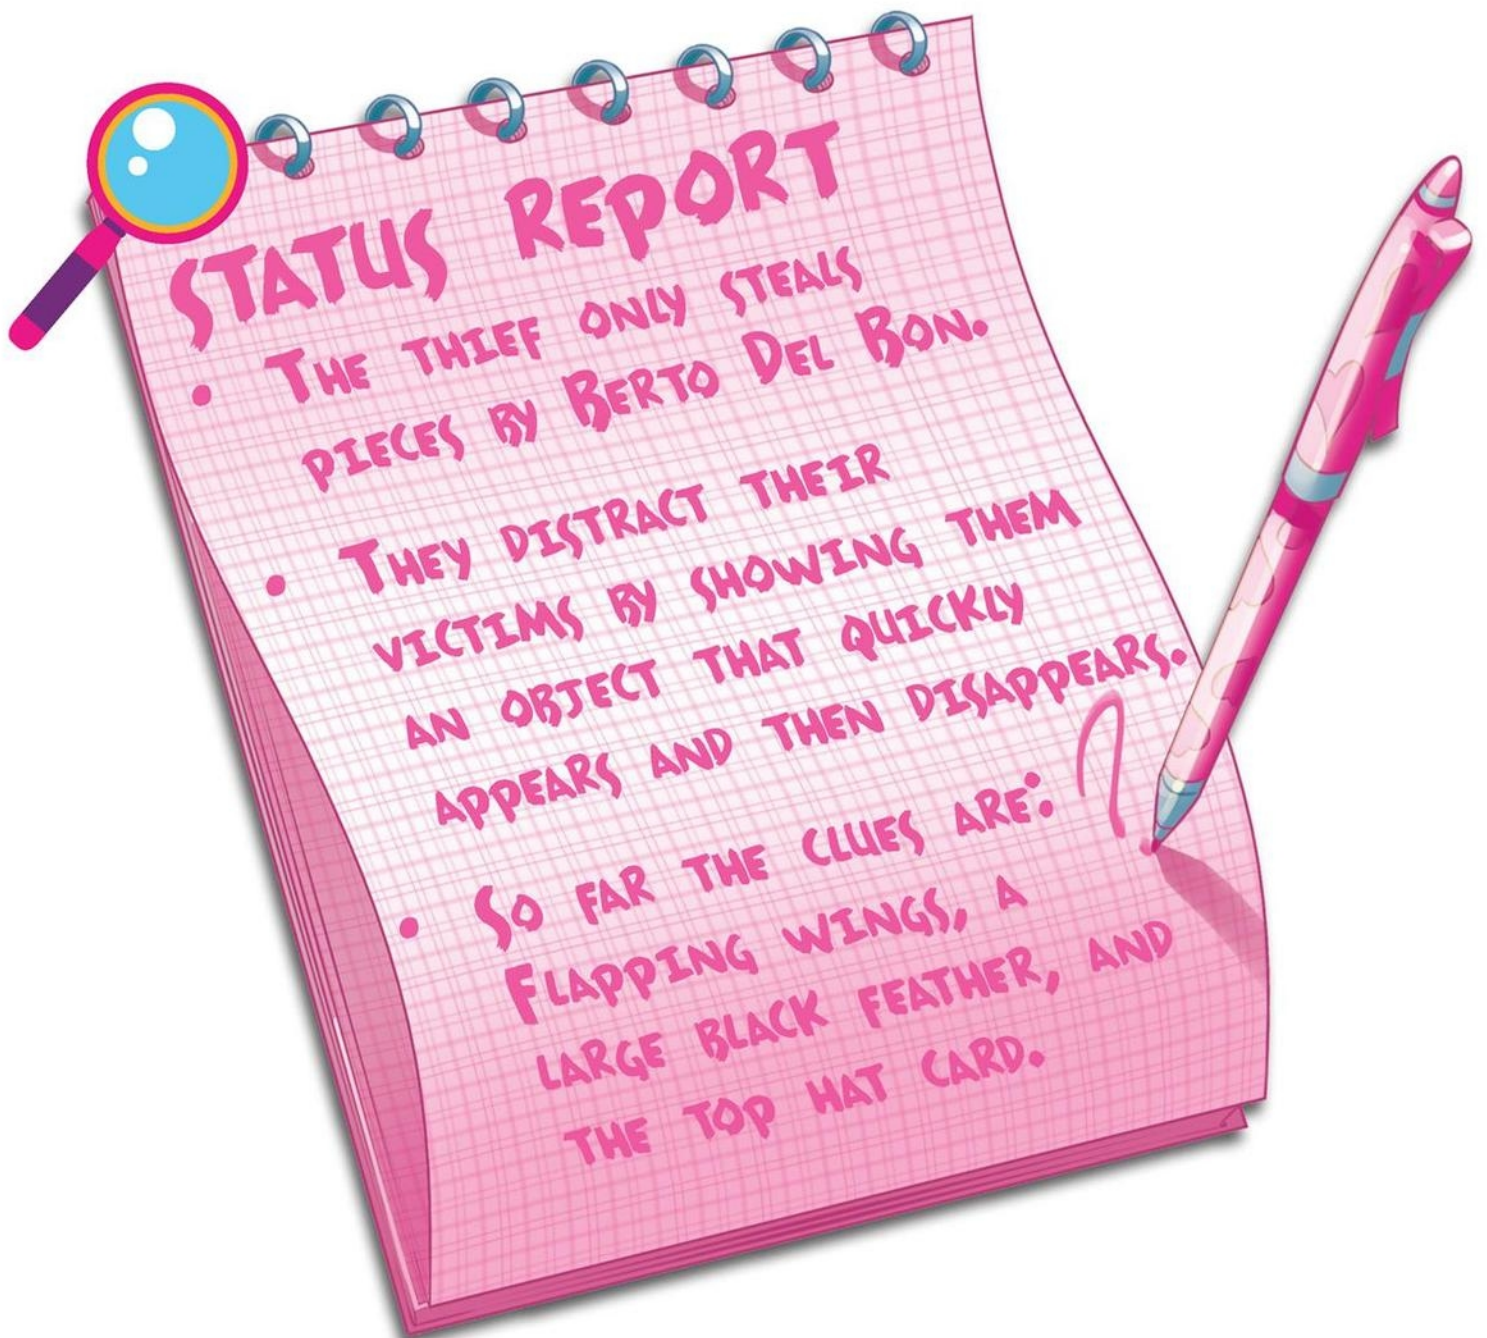 STATUS REPORT
• THE THIEF ONLY STEALS
PIECES BY BERTO DEL BON.
• THEY DISTRACT THEIR
VICTIMS BY SHOWING THEM
AN OBJECT THAT QUICKLY
APPEARS AND THEN DISAPPEARS.
• SO FAR THE CLUES ARE: ?
FLAPPING WINGS, A
LARGE BLACK FEATHER, AND
THE TOP HAT CARD.